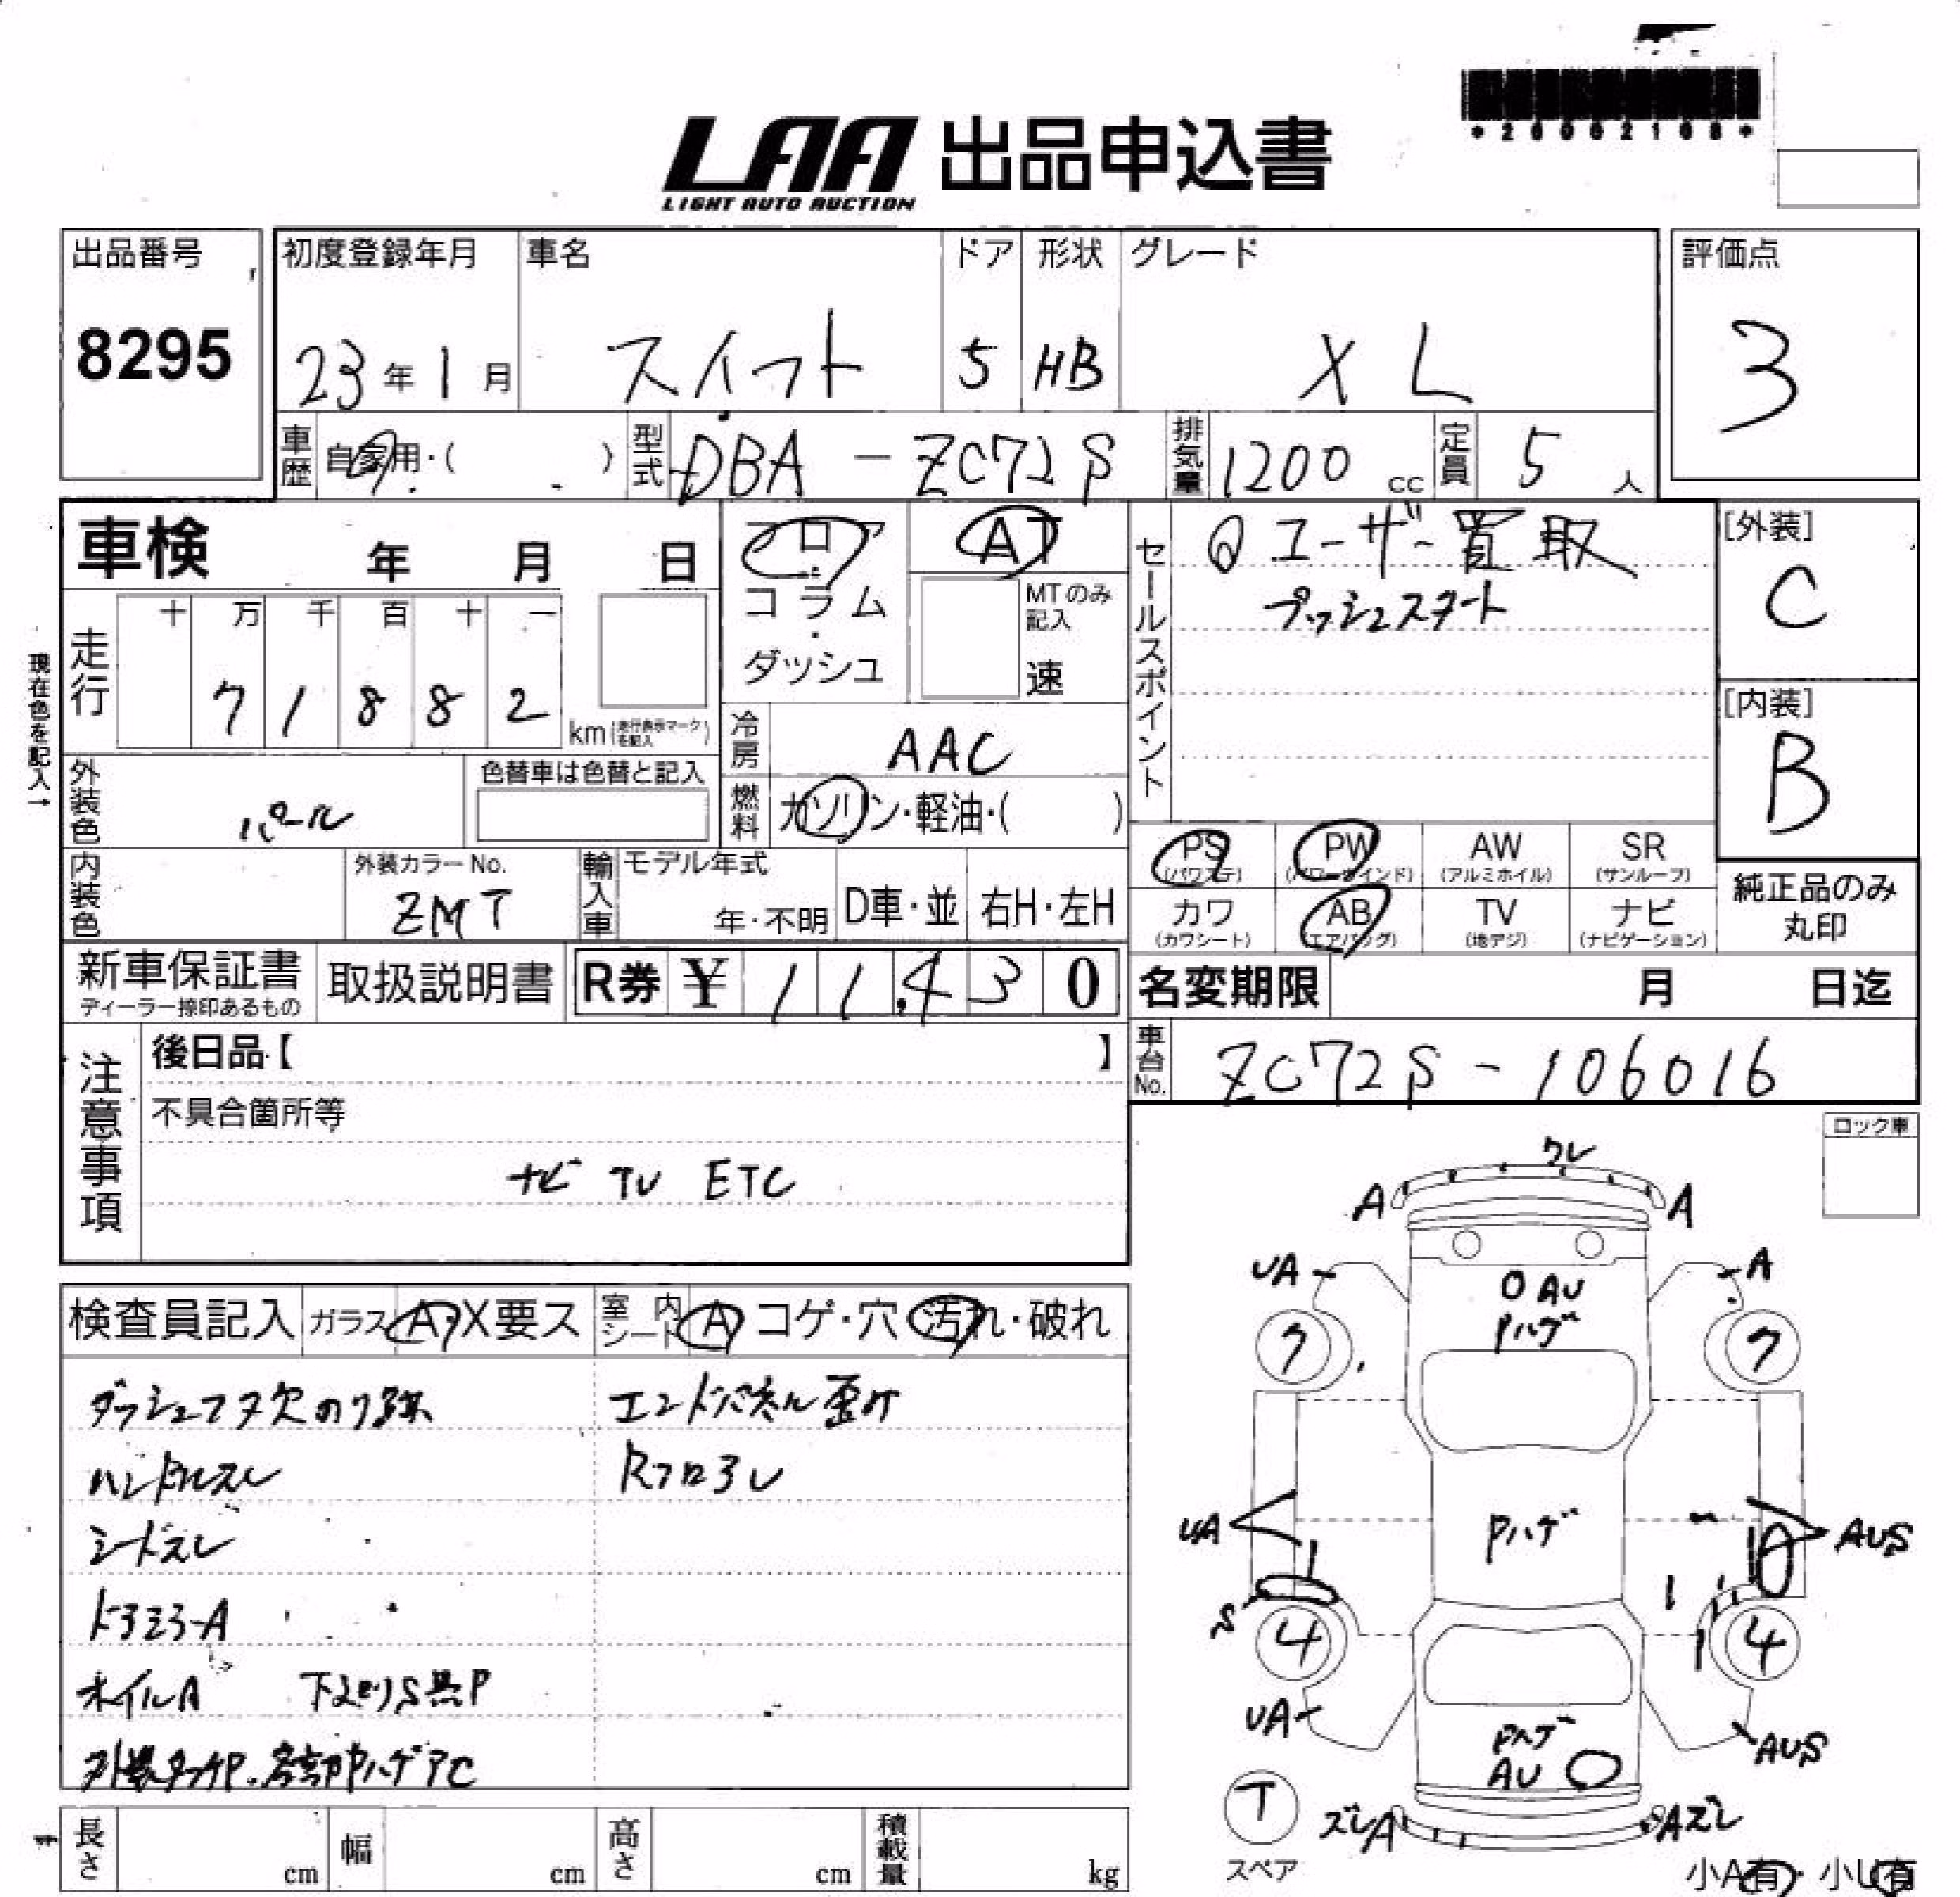 *20002108*
LAA 出品申込書
LIGHT AUTO AUCTION
出品番号
8295
初度登録年月
23年1月
車名
スイフト
ドア
5
形状
HB
グレード
XL
評価点
3
車歴
自家用・( )
型式
DBA-ZC72S
排気量
1200 cc
定員
5 人
車検 年 月 日
フロア・コラム・ダッシュ
AT
MTのみ記入
速
走行
十 万 千 百 十 一
7 1 8 8 2
km(走行表示マークを記入)
現在色を記入→
冷房
AAC
燃料
ガソリン・軽油・( )
外装色
パール
色替車は色替と記入
内装色
外装カラーNo.
ZMT
輸入車
モデル年式
年・不明
D車・並
右H・左H
セールスポイント
ユーザー買取
プッシュスタート
[外装]
C
[内装]
B
PS
(パワステ)
PW
(パワーウインド)
AW
(アルミホイル)
SR
(サンルーフ)
カワ
(カワシート)
AB
(エアバッグ)
TV
(地デジ)
ナビ
(ナビゲーション)
純正品のみ丸印
新車保証書
ディーラー捺印あるもの
取扱説明書
R券 ¥ 11,430
名変期限 月 日迄
車台No.
ZC72S-106016
注意事項
後日品【 】
不具合箇所等
ナビ TV ETC
ロック車
検査員記入
ガラス A・X要ス
室内シート A コゲ・穴・汚れ・破れ
ダッシュフタ欠のり跡
エンドパネル歪み
ハンドルスレ
シートスレ
ドアミラーA
ホイルA
ワレ
A
A
UA
A
AU
Pハゲ
7
7
UA
Pハゲ
AUS
S
4
4
UA
AUS
Pハゲ
AU
T
スペア
ズレA
Aズレ
小A有・小U有
長さ cm
幅 cm
高さ cm
積載量 kg